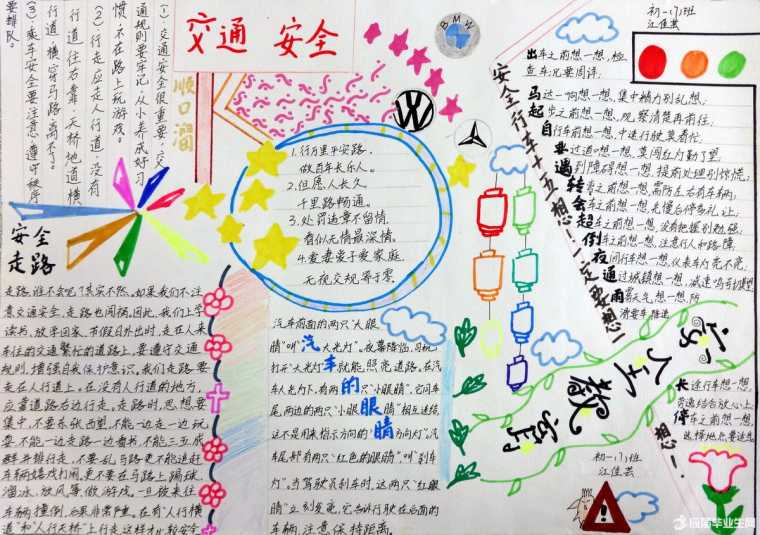 交通 安全
BMW
初一(1)班
江佳芸
顺口溜
(1)、交通安全很重要,交
通规则要牢记,从小养成好习
惯,不在路上玩游戏。
(2)、行走应走人行道,没有
行道往右靠,天桥地道横
行道,横穿马路离不了。
(3)、乘车安全要注意,遵守秩序
要排队。
1.行万里平安路,
做百年长乐人。
2.但愿人长久,
千里路畅通。
3.处罚违章不留情,
看似无情最深情。
4.爱妻爱子爱家庭,
无视交规等于零。
安全行车十五想!一定要想一
想一!
出车之前想一想,检
查车况要周详,
马达一响想一想,集中精力别乱想;
起步之前想一想,观察清楚再前往,
自行车前想一想,中速行驶莫着忙,
要过道口想一想,莫闯红灯勤了望,
遇到障碍想一想,提前处理别惊慌;
转弯之前想一想,需防左右有车辆,
会车之前想一想,先慢后停多礼让,
超车之前想一想,没有把握别勉强;
倒车之前想一想,注意行人和路障,
夜间行车想一想,仪表车灯亮不亮;
通过城镇想一想,减速鸣号切莫
雨雾天气,想一想,防
滑要车距
长途行车想一想,
劳逸结合放心上,
停车之前想一想,
这样地点要适
安全
走路
走路,谁不会呢?其实不然,如果我们不注
意交通安全,走路也闯祸,因此,我们上学
读书、放学回家、节假日外出时,走在人来
车往的交通繁忙的道路上,要遵守交通
规则,增强自我保护意识。我们走路要
走在人行道上。在没有人行道的地方,
应靠道路右边行走。走路时,思想要
集中,不要东张西望,不能一边走一边玩
耍,不能一边走路一边看书,不能三五成
群并排行走,不要乱马路更不能追赶
车辆嬉戏打闹,更不要在马路上踢球,
溜冰,放风筝,做游戏,一旦被来往
车辆撞倒,后果非常严重。在有“人行横
道”和“人行天桥”上行走这样才比较安全
汽车前面的两只“大眼
睛”叫“汽大光灯”。夜幕降临,司机
打开“大光灯”车就能照亮道路。在汽
车大光灯下,有两的只“小眼睛”,它同车
尾两边的两只“小眼睛”相互连结,
这不是用来指示方向的“睛方向灯”汽
车尾部有两只“红色的眼睛”,叫“刹车
灯”。当驾驶员刹车时,这两只“红眼
睛”立刻发亮,它告诉行驶在后面的
车辆,注意保持距离。
安全教育
初一(1)班
江佳芸
应届毕业生网